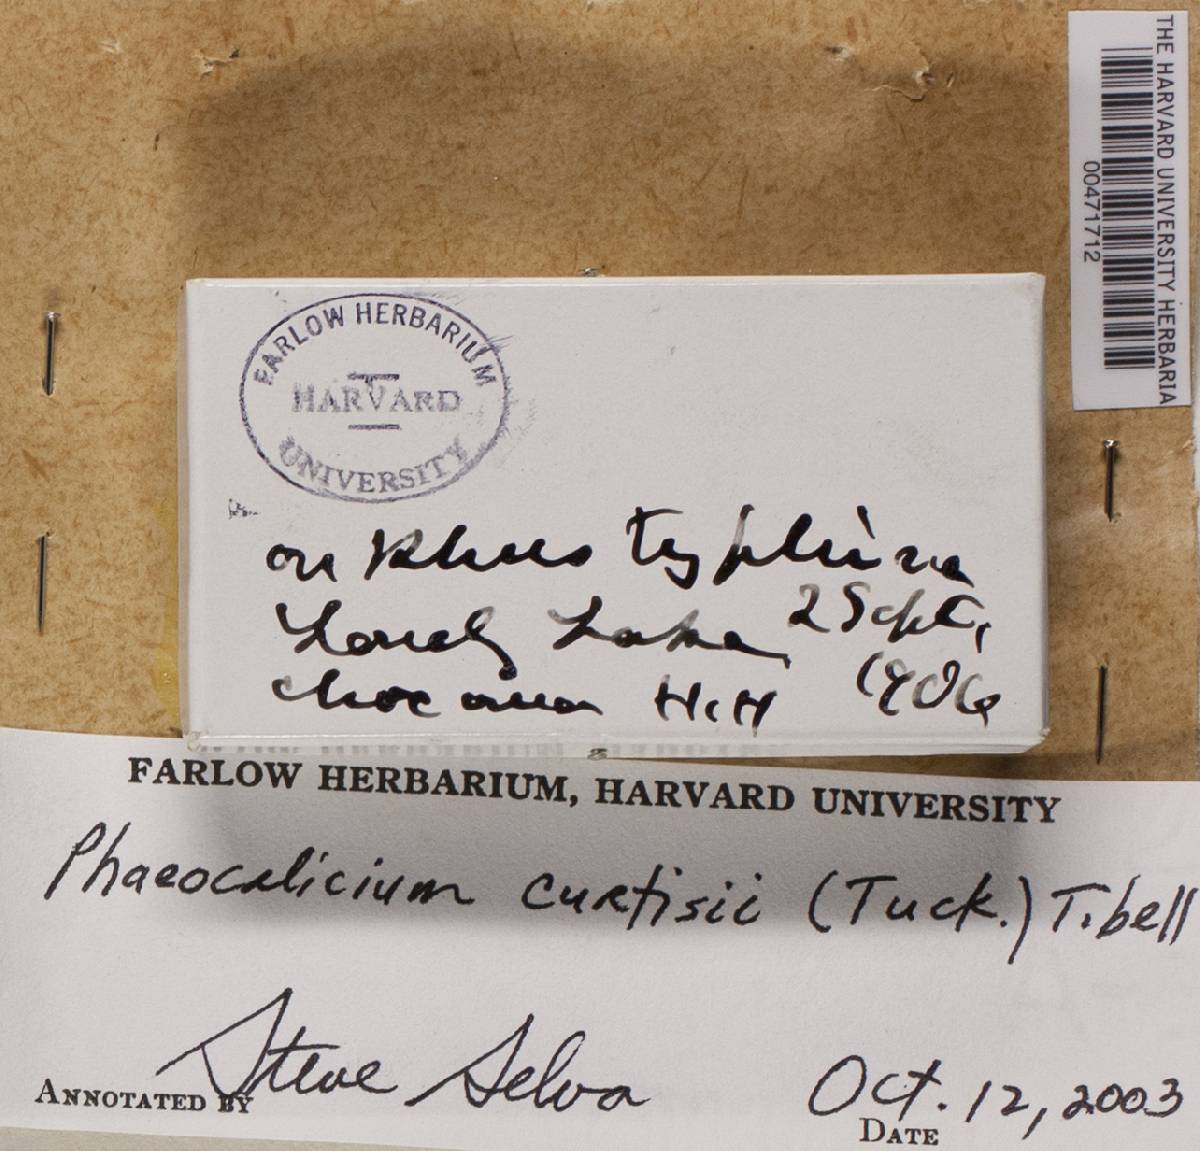 THE HARVARD UNIVERSITY HERBARIA
00471712
FARLOW HERBARIUM
HARVARD
UNIVERSITY
on Rhus typhina
Lonely Lake, 2 Sept,
Chocorua N.H 1906
FARLOW HERBARIUM, HARVARD UNIVERSITY
Phaeocalicium curtisii (Tuck.) Tibell
Steve Selva
ANNOTATED BY
Oct. 12, 2003
DATE